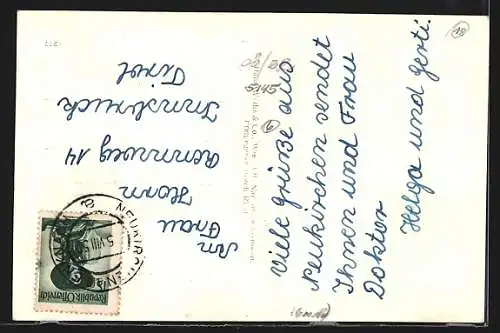 Viele Grüße aus
Neukirchen sendet
Ihnen und Frau
Doktor
Helga und Gerti.
An
Frau
Horn
Rennweg 14
Innsbruck
Tirol
NEUKIRCHEN
Republik Österreich
5145
6
10